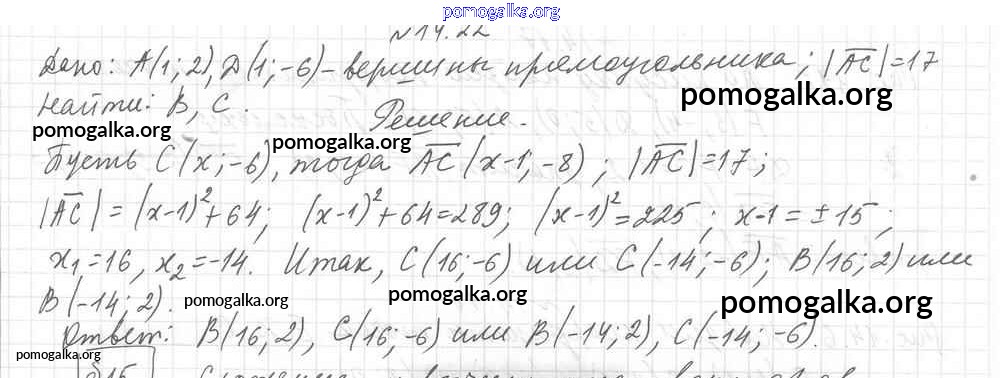 pomogalka.org
N14.22
Дано: A(1; 2), D(1; -6) - вершины прямоугольника; |AC|=17
pomogalka.org
Найти: B, C.
Решение.
pomogalka.org
pomogalka.org
Пусть C(x; -6), тогда AC (x-1; -8); |AC|=17;
|AC| = (x-1)²+64; (x-1)²+64=289; (x-1)²=225; x-1=±15;
x₁=16, x₂=-14. Итак, C(16; -6) или C(-14; -6); B(16; 2) или
B(-14; 2).
pomogalka.org
pomogalka.org
pomogalka.org
Ответ: B(16; 2), C(16; -6) или B(-14; 2), C(-14; -6).
pomogalka.org
§15